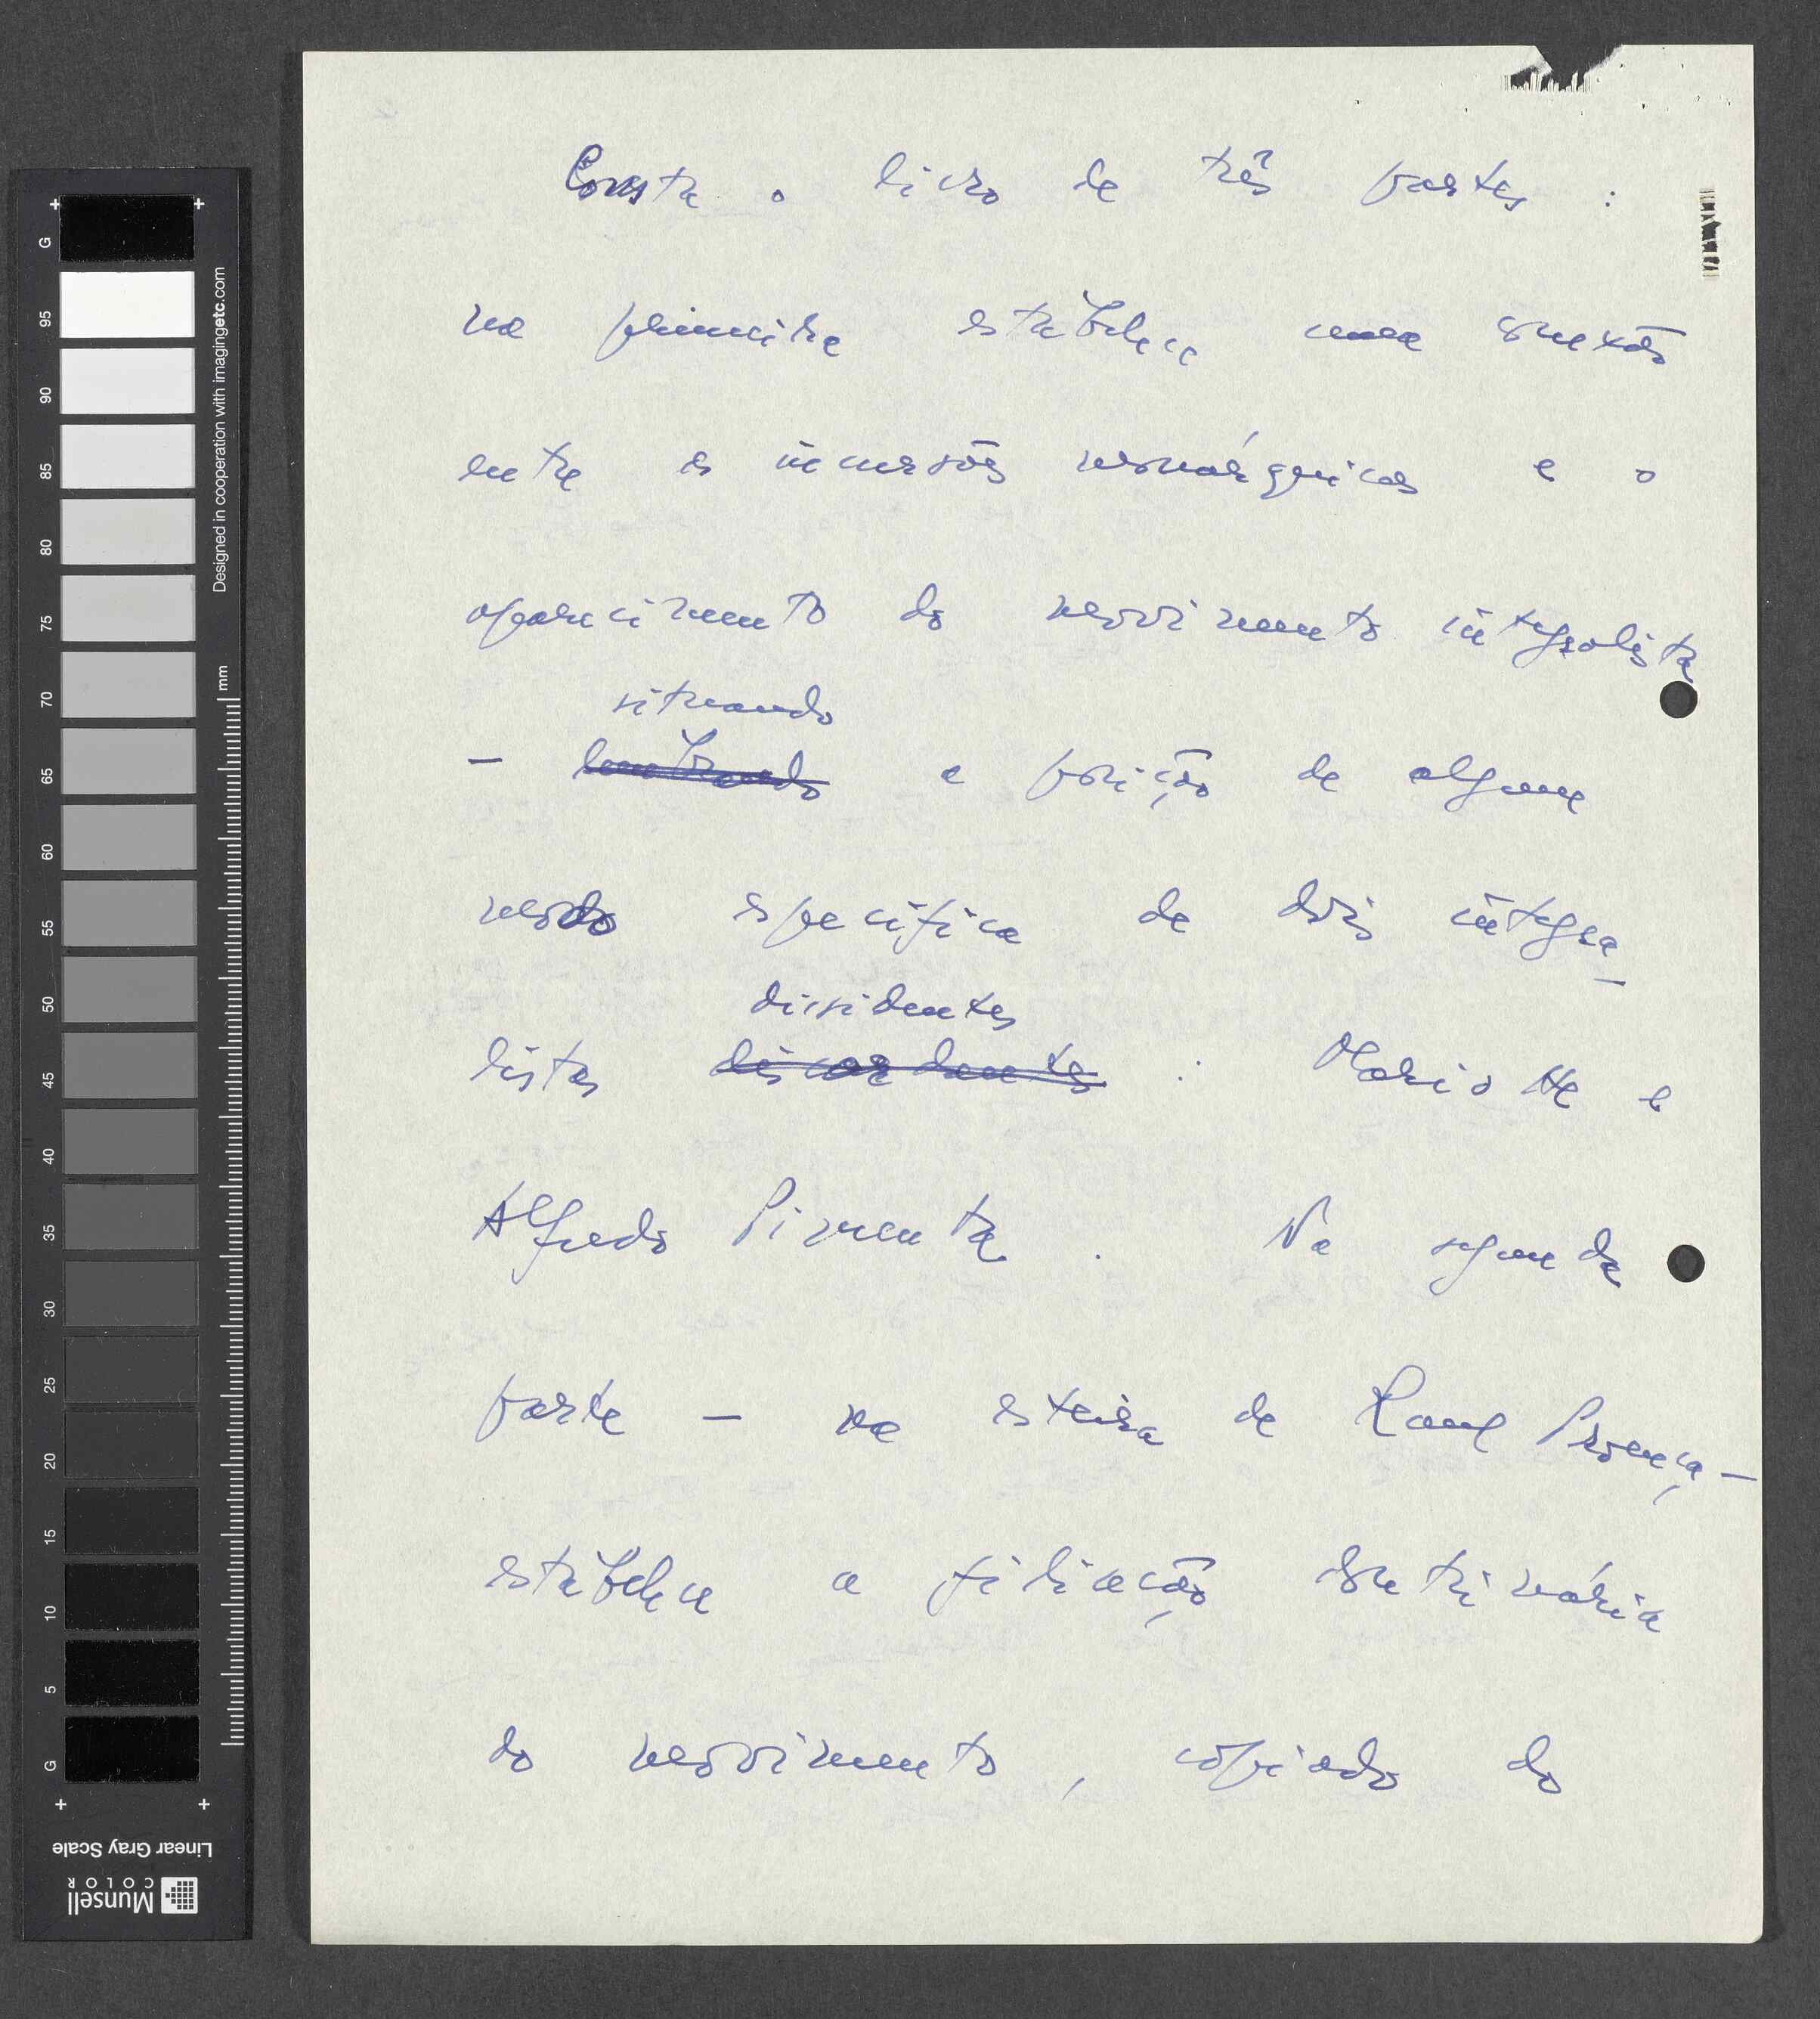 Consta o livro de três partes :
na primeira estabelece uma conexão
entre as incursões monárquicas e o
aparecimento do movimento integralista
situando
— lembrando a posição de algum
modo específica de dois integra-
dissidentes
listas discordantes : Mario Sáa e
Alfredo Pimenta . Na segunda
parte — na esteira de Raul Proença —
estabelece a filiação doutrinária
do movimento , copiado do
G 95 90 85 80 75 70 65 60 55 50 45 40 35 30 25 20 15 10 5 G
mm
Designed in cooperation with imagingetc.com
Linear Gray Scale
Munsell
COLOR